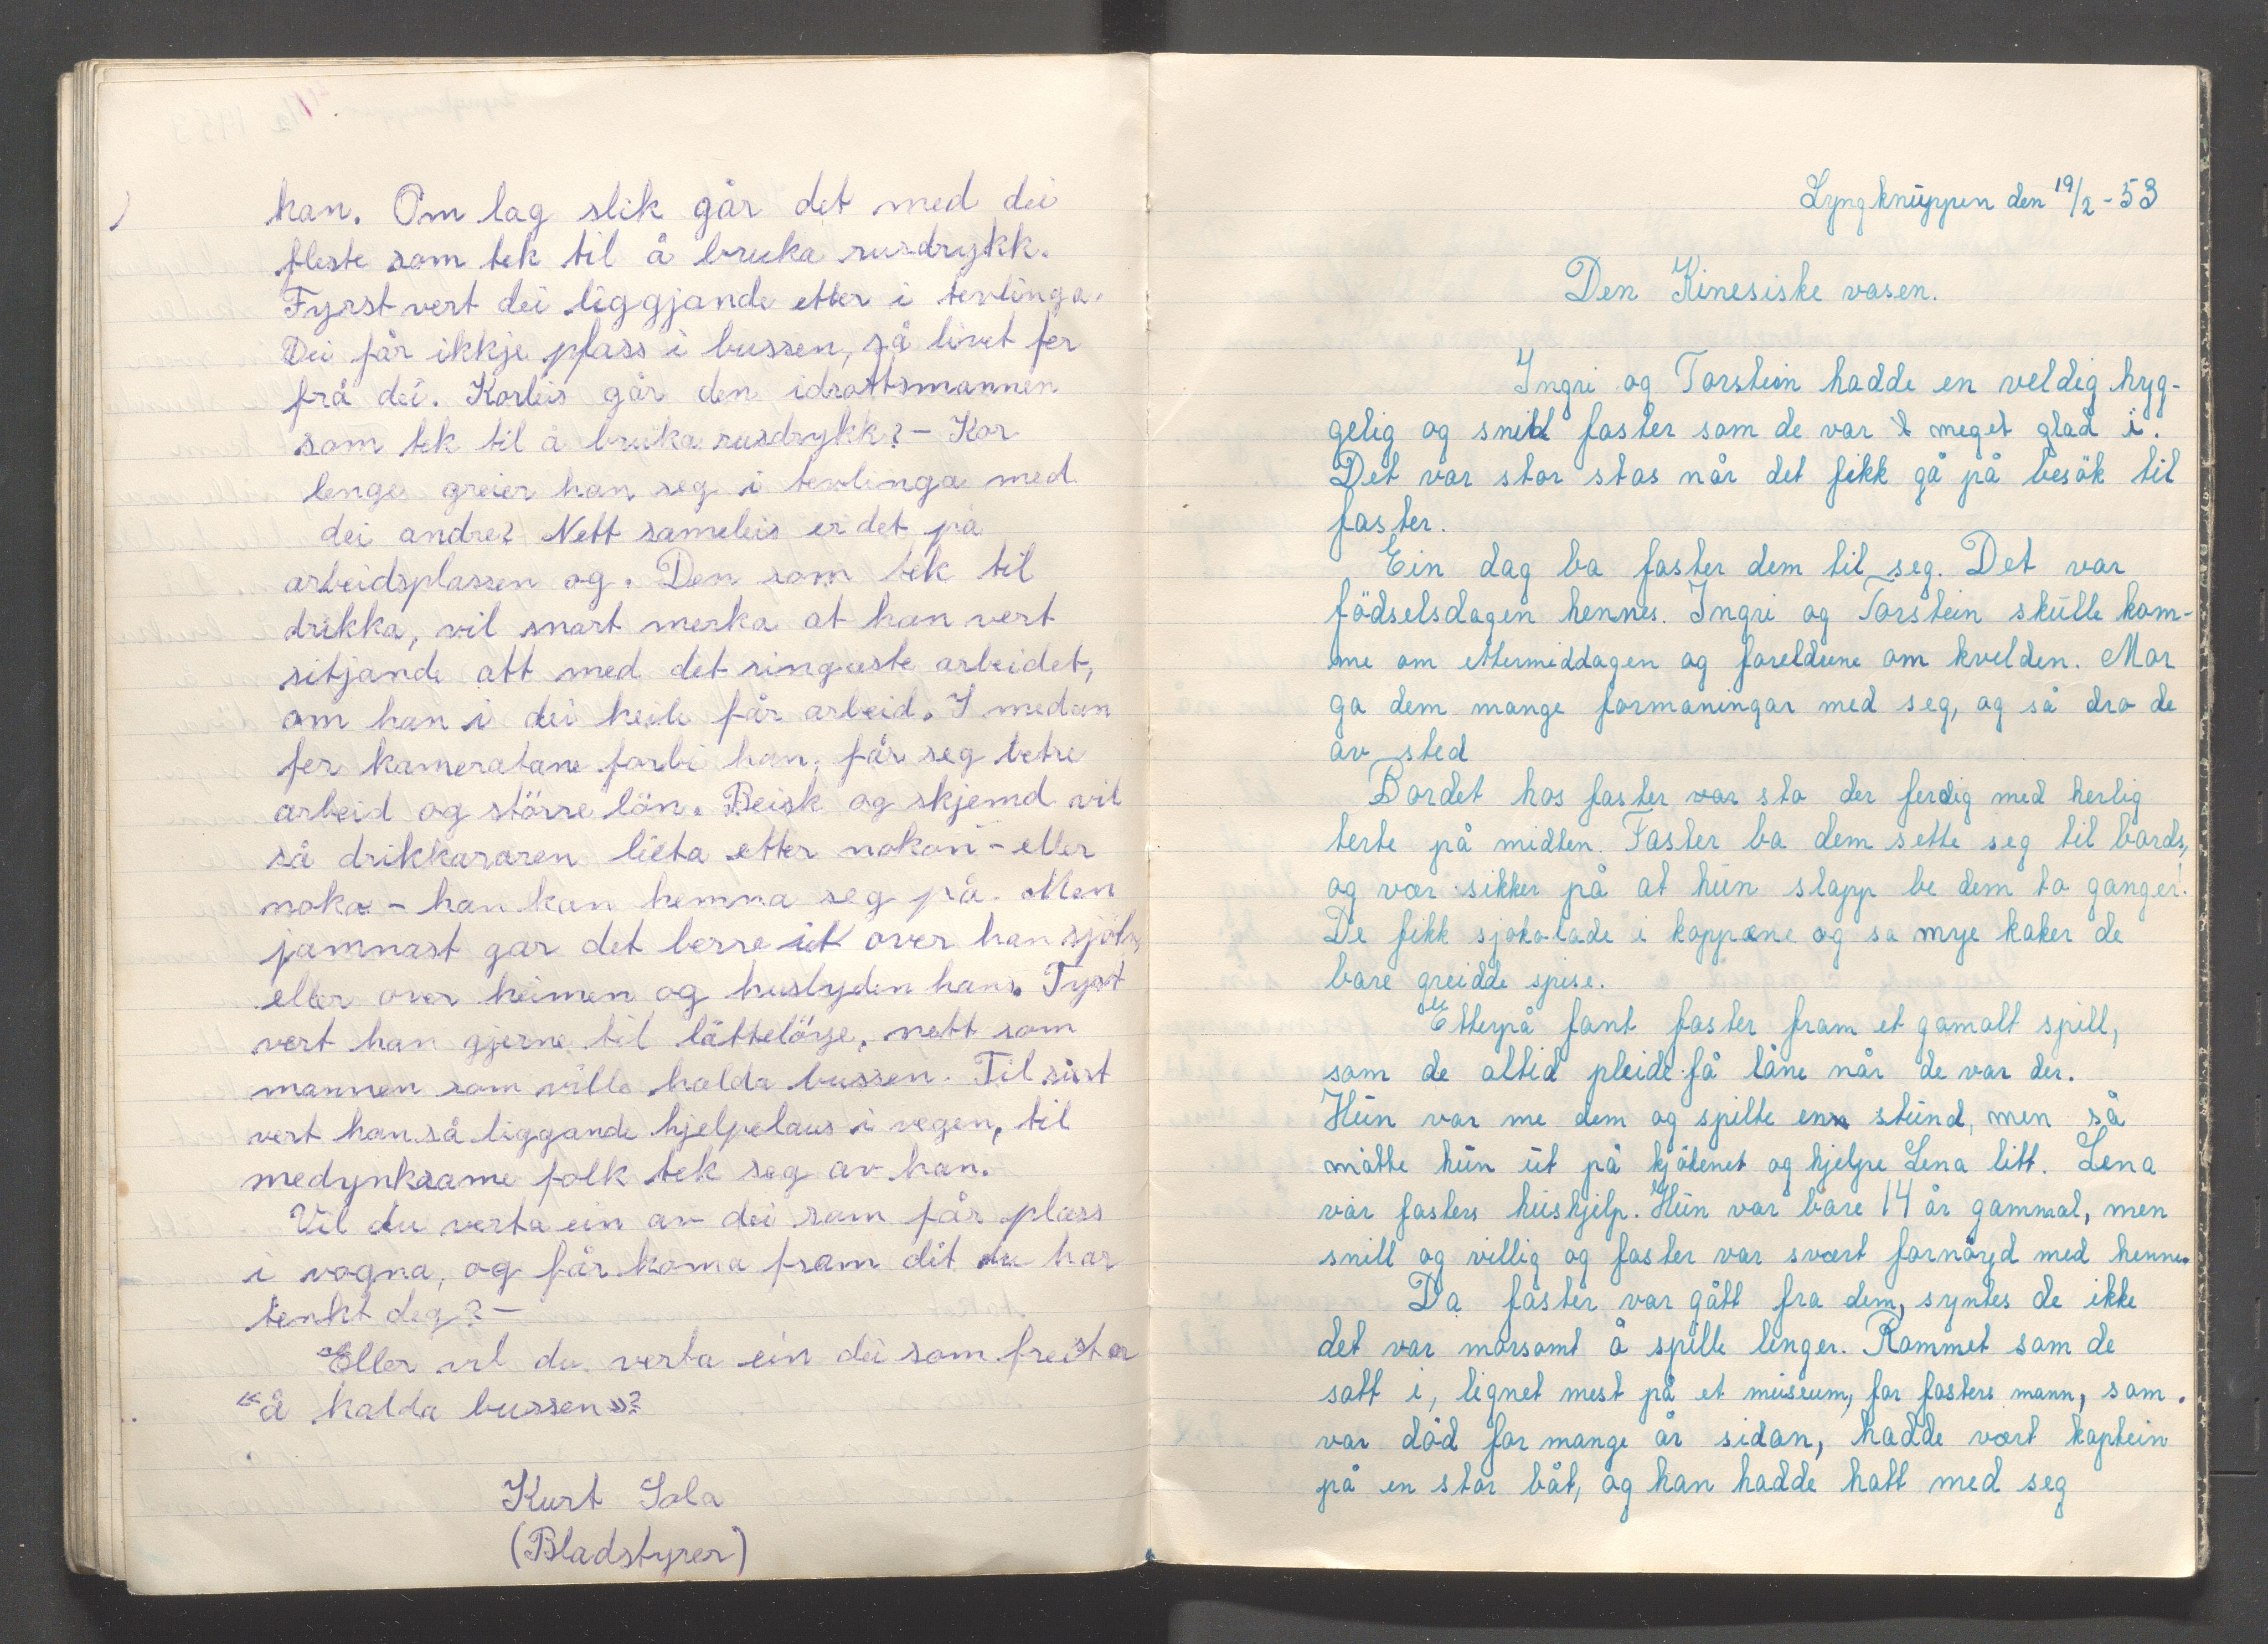 han. Om lag slik går det med dei
fleste som tek til å bruka rusdrykk.
Fyrst vert dei liggjande etter i tevlinga.
Dei får ikkje plass i bussen, så livet fer
frå dei. Korleis går den idrottsmannen
som tek til å bruka rusdrykk? - Kor
lenge greier han seg i tevlinga med
dei andre? Nett sameleis er det på
arbeidsplassen og. Den som tek til
drikka, vil snart merka at han vert
sitjande att med det ringaste arbeidet,
om han i dei heile får arbeid. I medan
fer kameratane forbi han, får seg betre
arbeid og större lön. Beisk og skjemd vil
så drikkararen lieta etter nokon - eller
noka - han kan hemna seg på. Men
jamnast gar det berre ut over han sjölv,
eller over heimen og huslyden hans. Fyrst
vert han gjerne til låttelöyse, nett som
mannen som ville halda bussen. Til sist
vert han så liggande hjelpelaus i vegen, til
medynksame folk tek seg av han.
Vil du verta ein av dei som får plass
i vogna, og får koma fram dit du har
tenkt deg? -
Eller vil du verta ein dei som freistar
"å halda bussen"?
Kurt Sola
(Bladstyrer)
Lyngknuppen den 19/2 - 53
Den Kinesiske vasen.
Ingri og Torstein hadde en veldig hyg-
gelig og snill faster som de var meget glad i.
Det var stor stas når det fikk gå på besök til
faster.
Ein dag ba faster dem til seg. Det var
födselsdagen hennes. Ingri og Torstein skulle kom-
me om ettermiddagen og foreldrene om kvelden. Mor
ga dem mange formaningar med seg, og så dro de
av sted
Bordet hos faster var sto der ferdig med herlig
terte på midten. Faster ba dem sette seg til bords,
og vær sikker på at hun slapp be dem to ganger!
De fikk sjokolade i koppene og sa mye kaker de
bare greidde spise.
Etterpå fant faster fram et gamalt spill,
som de altid pleide få låne når de var der.
Hun var me dem og spilte enn stund, men så
måtte hun ut på kjökenet og hjelpe Lena litt. Lena
var fasters hushjelp. Hun var bare 14 år gammal, men
snill og villig og faster var svært fornöyd med henne.
Da faster var gått fra dem, syntes de ikke
det var morsomt å spille lenger. Rommet som de
satt i, lignet mest på et museum, for fasters mann, som
var död for mange år sidan, hadde vært kaptein
på en stor båt, og han hadde hatt med seg